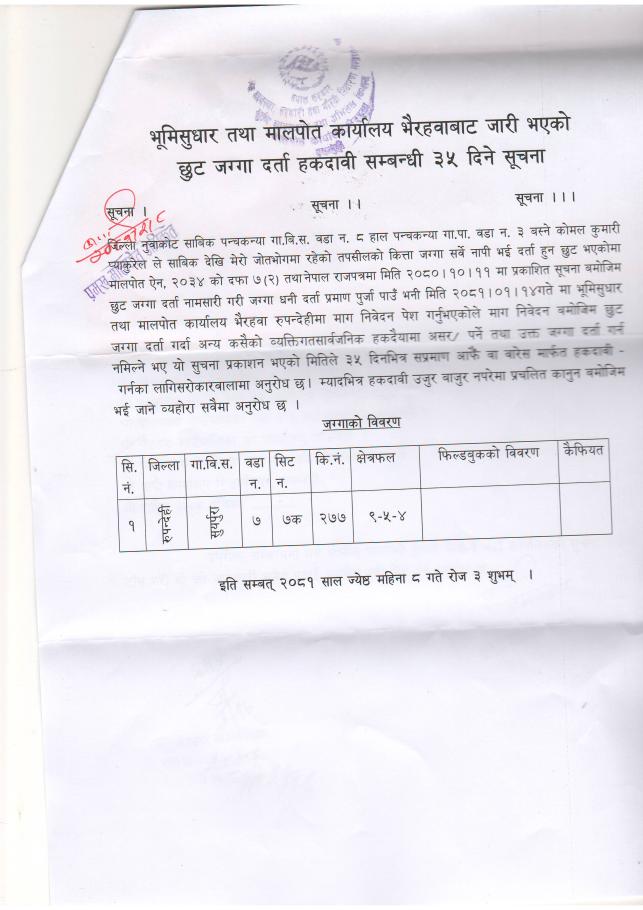 भूमिसुधार तथा मालपोत कार्यालय भैरहवाबाट जारी भएको
छुट जग्गा दर्ता हकदावी सम्बन्धी ३५ दिने सूचना
सूचना । सूचना ।। सूचना ।।।
जिल्ला नुवाकोट साबिक पन्चकन्या गा.बि.स. वडा न. ८ हाल पन्चकन्या गा.पा. वडा न. ३ बस्ने कोमल कुमारी
प्याकुरेल ले साबिक देखि मेरो जोतभोगमा रहेको तपसीलको कित्ता जग्गा सर्वे नापी भई दर्ता हुन छुट भएकोमा
मालपोत ऐन, २०३४ को दफा ७(२) तथानेपाल राजपत्रमा मिति २०८०।१०।११ मा प्रकाशित सूचना बमोजिम
छुट जग्गा दर्ता नामसारी गरी जग्गा धनी दर्ता प्रमाण पुर्जा पाउँ भनी मिति २०८१।०१।१४गते मा भूमिसुधार
तथा मालपोत कार्यालय भैरहवा रुपन्देहीमा माग निवेदन पेश गर्नुभएकोले माग निवेदन बमोजिम छुट
जग्गा दर्ता गर्दा अन्य कसैको व्यक्तिगतसार्वजनिक हकदैयामा असर/ पर्ने तथा उक्त जग्गा दर्ता गर्न
नमिल्ने भए यो सुचना प्रकाशन भएको मितिले ३५ दिनभित्र सप्रमाण आफै वा बारेस मार्फत हकदाबी -
गर्नका लागिसरोकारवालामा अनुरोध छ। म्यादभित्र हकदावी उजुर बाजुर नपरेमा प्रचलित कानुन बमोजिम
भई जाने व्यहोरा सवैमा अनुरोध छ ।
जग्गाको विवरण
सि. नं. जिल्ला गा.वि.स. वडा न. सिट न. कि.नं. क्षेत्रफल फिल्डबुकको विवरण कैफियत
१ रुपन्देही ७ ७क २७७ ९-५-४
इति सम्बत् २०८१ साल ज्येष्ठ महिना ८ गते रोज ३ शुभम् ।